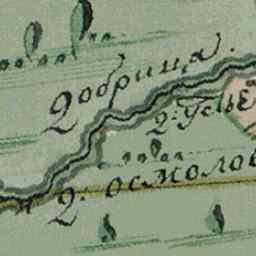 Добрица.
д: Усье
д. осмолов